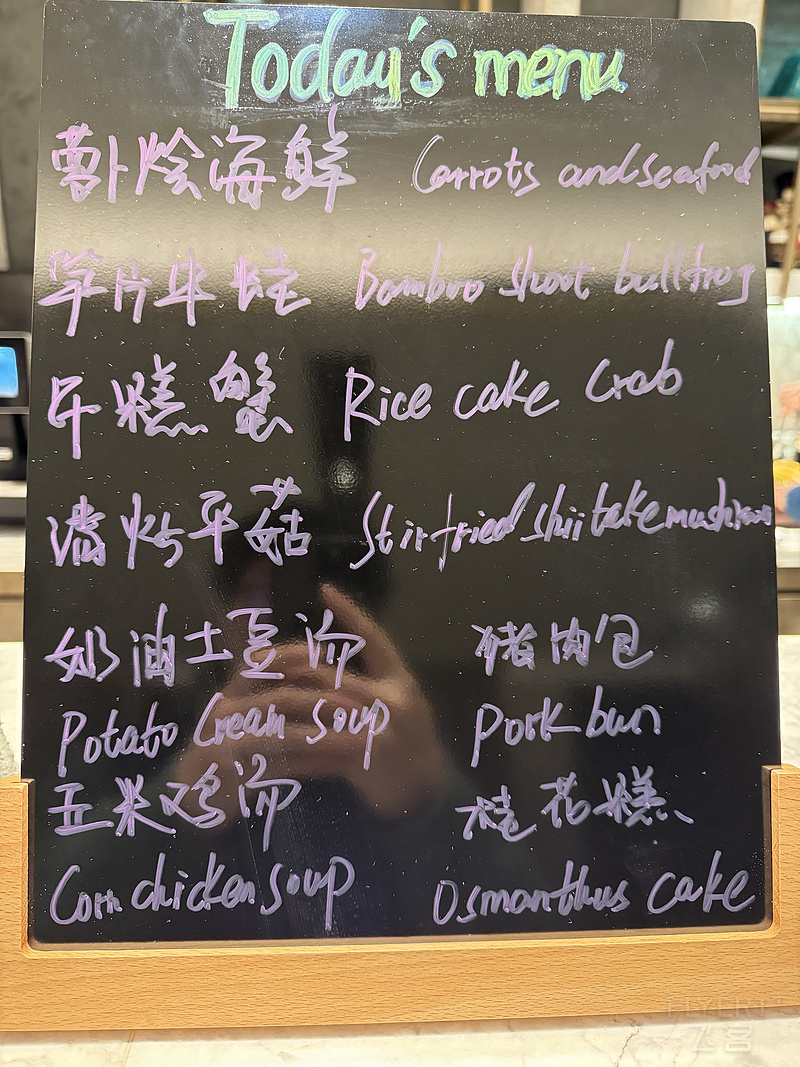 Today's menu
萝卜烩海鲜 Carrots and seafood
笋片牛蛙 Bamboo shoot bullfrog
年糕蟹 Rice cake Crab
平菇 Stir fried shiitake mushroom
奶油土豆汤 猪肉包
Potato Cream Soup Pork bun
玉米鸡汤 桂花糕
Corn chicken Soup Osmanthus cake
FLYERT
飞客